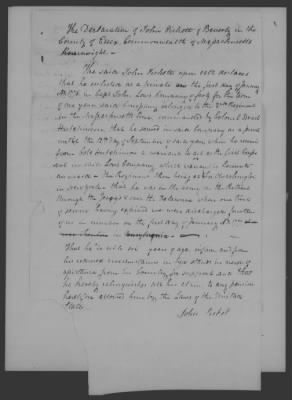 The Declaration of John Pickett of Beverly in the
County of Essex, Commonwealth of Massachusetts

The said John Pickett upon oath declares
that he enlisted as a private on the first day of January
1776 in Capt John Low's Company of foot for the term
of one year said Company belonged to the Regiment
in the Massachusetts line commanded by Colonel Israel
Hutchinson that he served in said Company as a private
until the day of September in said year when he received
from Colo Hutchinson a warrant to act as the first Serjeant
in said Low's Company, which
the Regiment then being at
in New york that he was in the same in the Retreat
through the Jerseys over the Delaware when our time
of service having expired we were discharged
in number on the first day of January AD 1777

That he is sixty six years of age infirm and from
his reduced circumstances in life stands in need of
assistance from his Country for support and that
he hereby relinquishes all his claim to any pension
heretofore allotted him by the Laws of the United
States
John Picket